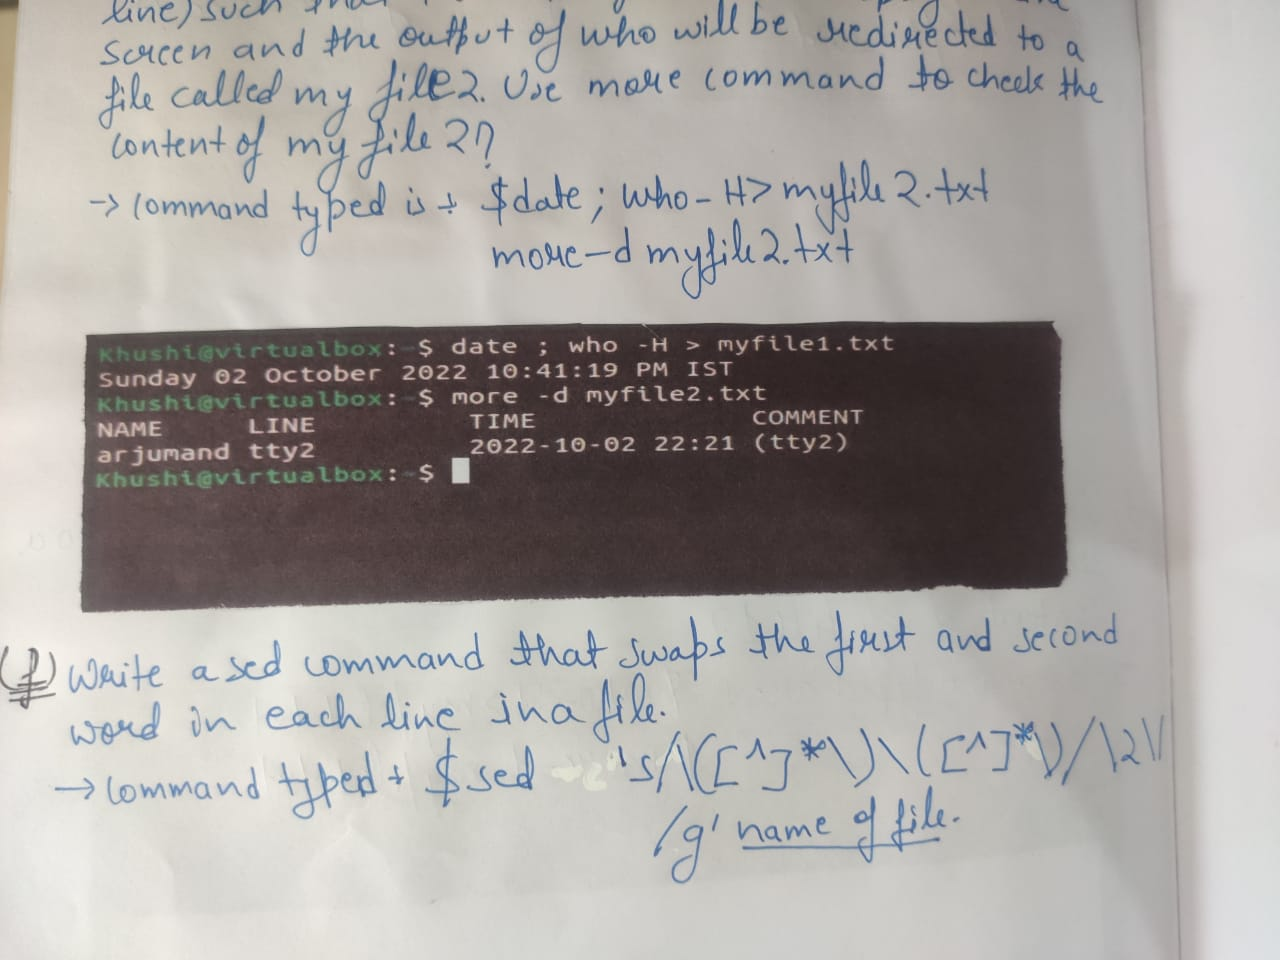 line) such that
screen and the output of who will be redirected to a
file called my file2. Use more command to check the
content of my file 2?
→ command typed is → $date ; who - H> myfile 2.txt
more-d myfile2.txt
Khushi@virtualbox:~$ date ; who -H > myfile1.txt
Sunday 02 October 2022 10:41:19 PM IST
Khushi@virtualbox:~$ more -d myfile2.txt
NAME LINE TIME COMMENT
arjumand tty2 2022-10-02 22:21 (tty2)
Khushi@virtualbox:~$
(f) Write a sed command that swaps the first and second
word in each line in a file.
→ command typed → $ sed 's/\([^]*\)\([^]*\)/\2\/
/g' name of file.